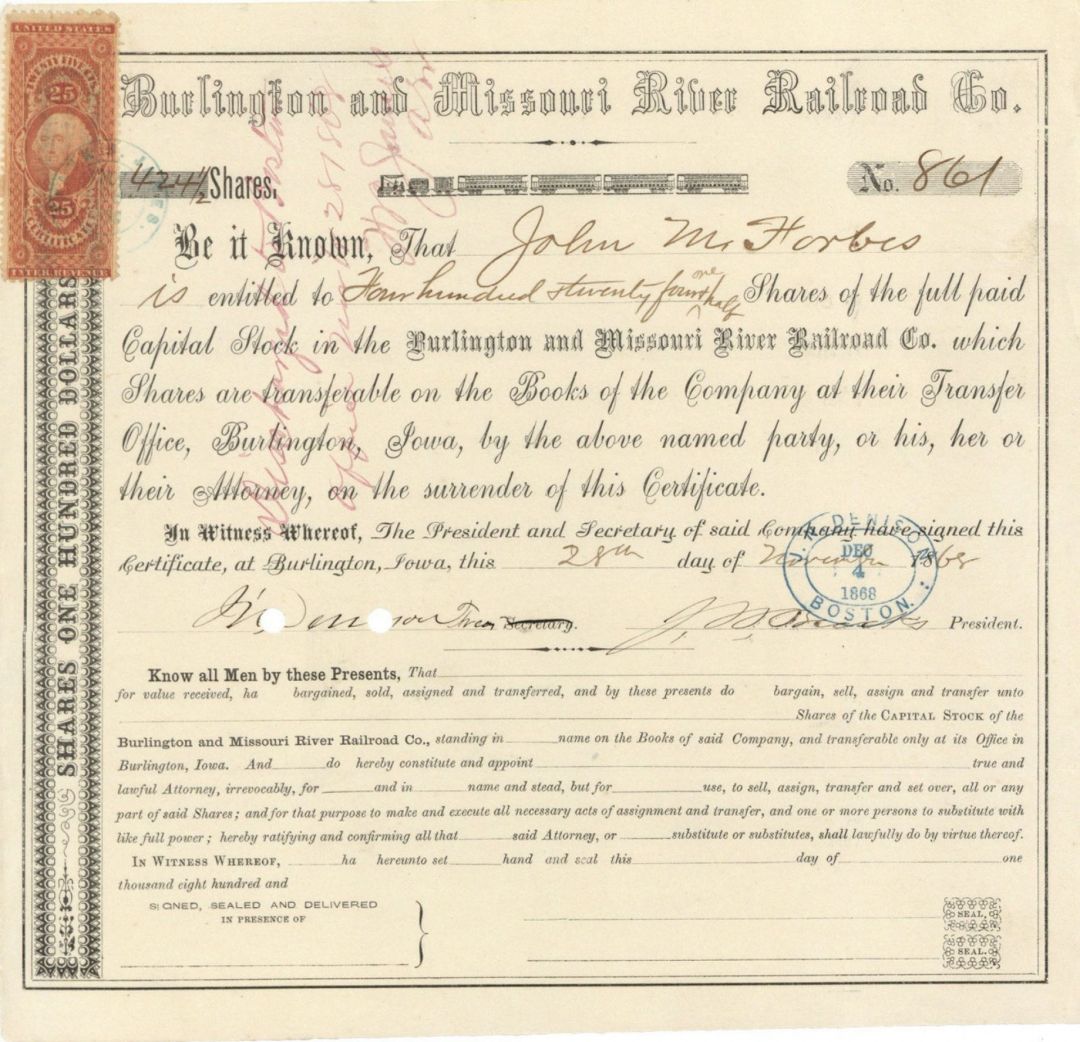 UNITED STATES
TWENTY FIVE
25
25
CERTIFICATE
INTER. REVENUE
Burlington and Missouri River Railroad Co.
424½ Shares.
No. 861
Be it Known, That John M. Forbes
is entitled to Four hundred & twenty four & one half Shares of the full paid
Capital Stock in the Burlington and Missouri River Railroad Co. which
Shares are transferable on the Books of the Company at their Transfer
Office, Burlington, Iowa, by the above named party, or his, her or
their Attorney, on the surrender of this Certificate.
In Witness Whereof, The President and Secretary of said Company have signed this
Certificate, at Burlington, Iowa, this 28th day of November 1868
J. N. Denison Treas Secretary. President.
J.N. DENISON
DEC
4
1868
BOSTON.
SHARES ONE HUNDRED DOLLARS
Know all Men by these Presents, That
for value received, ha bargained, sold, assigned and transferred, and by these presents do bargain, sell, assign and transfer unto
Shares of the CAPITAL STOCK of the
Burlington and Missouri River Railroad Co., standing in name on the Books of said Company, and transferable only at its Office in
Burlington, Iowa. And do hereby constitute and appoint true and
lawful Attorney, irrevocably, for and in name and stead, but for use, to sell, assign, transfer and set over, all or any
part of said Shares; and for that purpose to make and execute all necessary acts of assignment and transfer, and one or more persons to substitute with
like full power; hereby ratifying and confirming all that said Attorney, or substitute or substitutes, shall lawfully do by virtue thereof.
IN WITNESS WHEREOF, ha hereunto set hand and seal this day of one
thousand eight hundred and
SIGNED, SEALED AND DELIVERED
IN PRESENCE OF
SEAL,
SEAL.